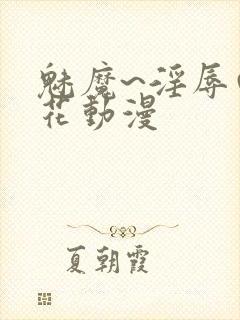 魅魔~淫辱(
花動漫
夏朝霞